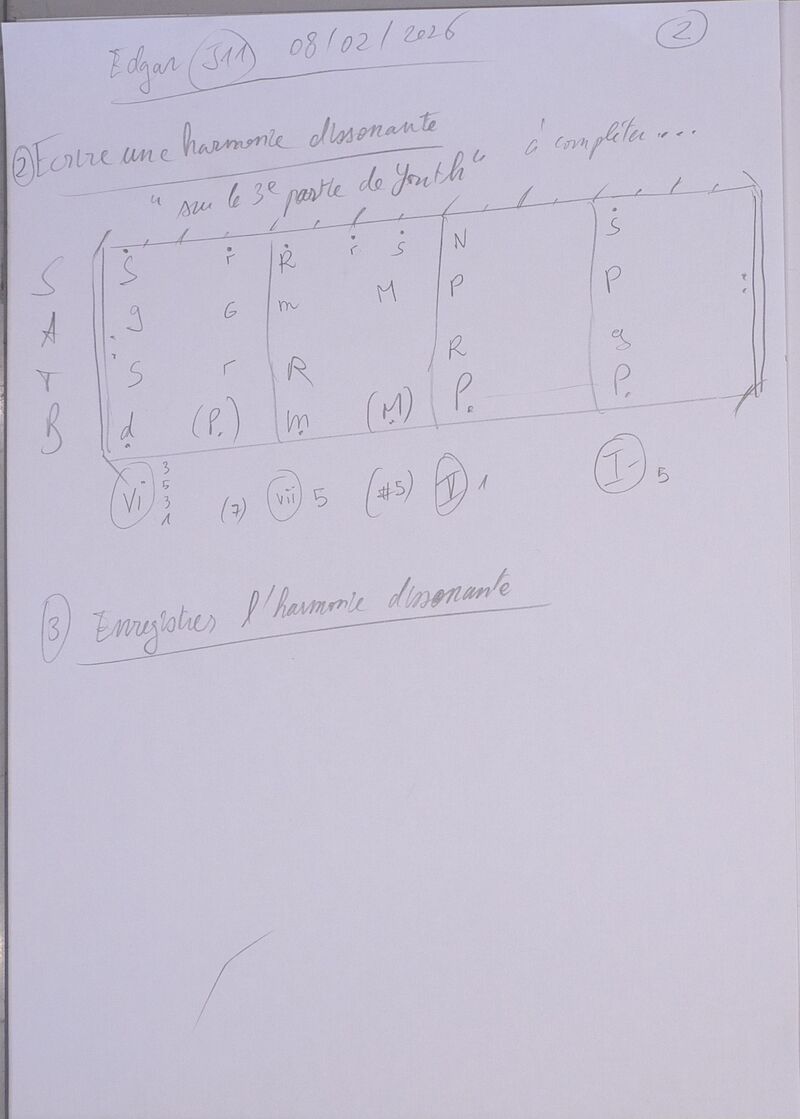 Edgar J11 08/02/2026
2
② Ecrire une harmonie dissonante
"sur le 3e partie de Youth" à compléter...
S Ṡ ṙ Ṙ ṙ ṡ N Ṡ
A g G m M P P
T S r R R g
B ḍ (P.) ṃ (Ṃ) P. P.
vi 3 5 3 1 (7) vii 5 (#5) V 1 I- 5
③ Enregistres l'harmonie dissonante